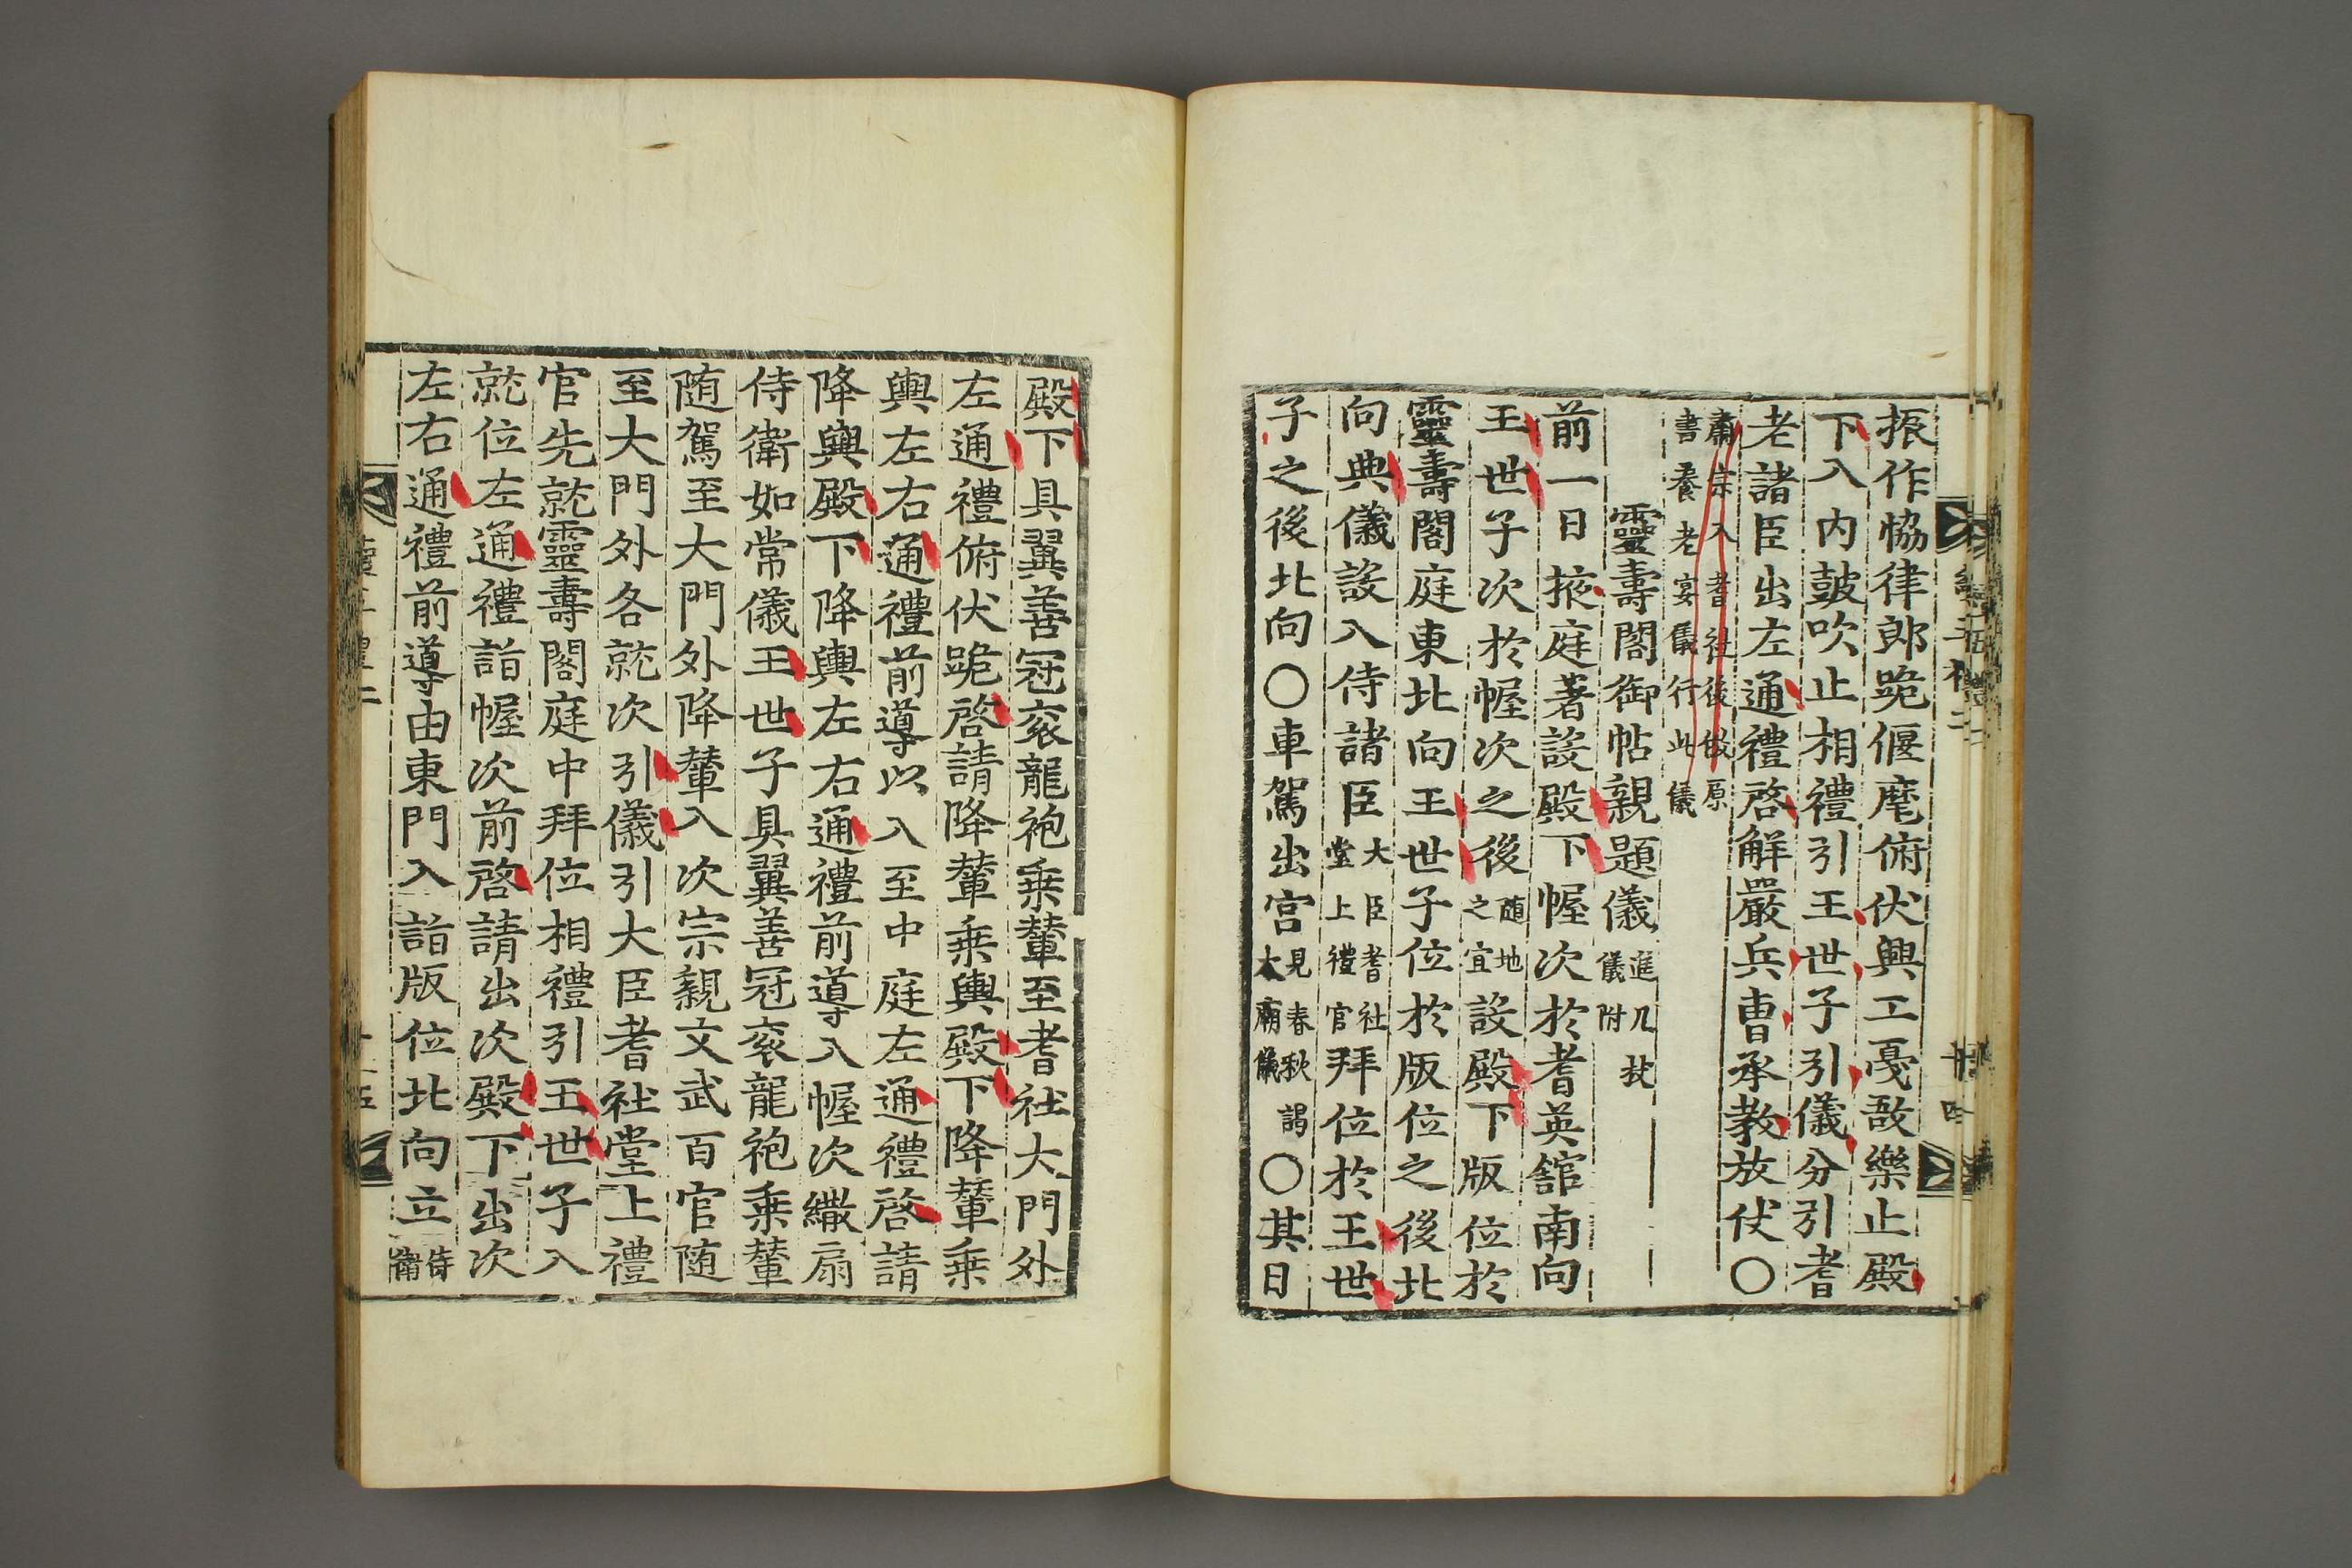 振作恊律郎跪偃麾俯伏興工戞敔樂止殿
下入內鼓吹止相禮引王世子引儀分引耆
老諸臣出左通禮啓解嚴兵曹承教放仗○
肅宗入耆社後倣原
書養老宴儀行此儀
靈壽閣御帖親題儀
進几杖
儀附
前一日掖庭署設殿下幄次於耆英舘南向
王世子次於幄次之後
隨地
之宜
設殿下版位於
靈壽閣庭東北向王世子位於版位之後北
向典儀設入侍諸臣
大臣耆社
堂上禮官
拜位於王世
子之後北向○車駕出宮
見春秋謁
太廟儀
○其日
殿下具翼善冠衮龍袍乗輦至耆社大門外
左通禮俯伏跪啓請降輦乗輿殿下降輦乗
輿左右通禮前導以入至中庭左通禮啓請
降輿殿下降輿左右通禮前導入幄次繖扇
侍衛如常儀王世子具翼善冠衮龍袍乗輦
随駕至大門外降輦入次宗親文武百官随
至大門外各就次引儀引大臣耆社堂上禮
官先就靈壽閣庭中拜位相禮引王世子入
就位左通禮詣幄次前啓請出次殿下出次
左右通禮前導由東門入詣版位北向立
侍
衛